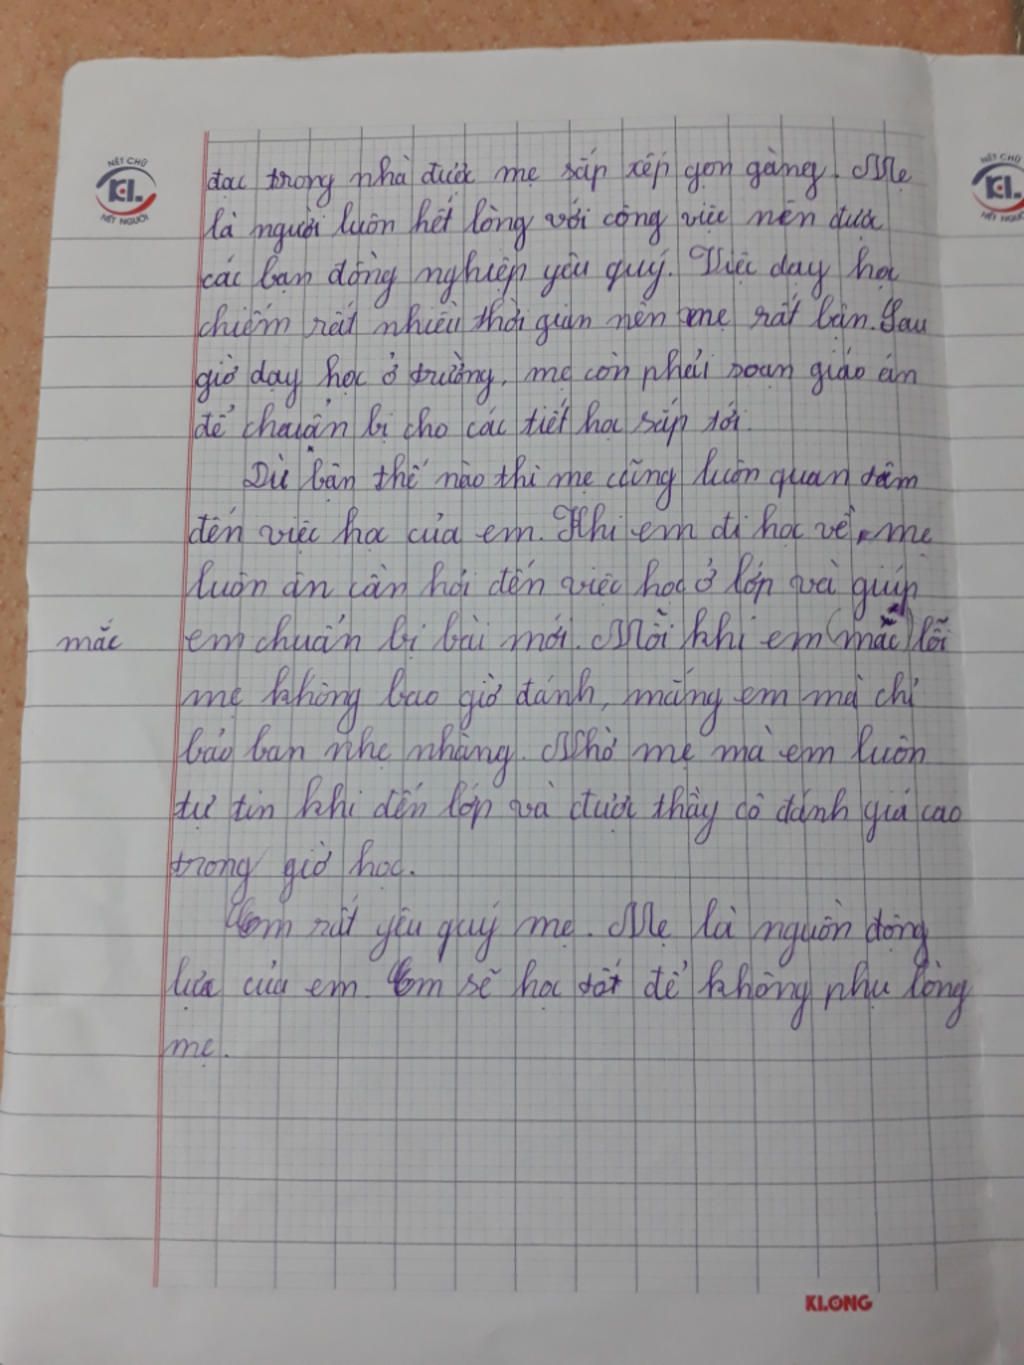 NÉT CHỮ
KL.
NẾT NGƯỜI
NÉT CHỮ
KL.
NẾT NGƯỜI
đạc trong nhà được mẹ sắp xếp gọn gàng. Mẹ
là người luôn hết lòng với công việc nên được
các bạn đồng nghiệp yêu quý. Việc dạy học
chiếm rất nhiều thời gian nên mẹ rất bận. Sau
giờ dạy học ở trường, mẹ còn phải soạn giáo án
để chuẩn bị cho các tiết học sắp tới.
Dù bận thế nào thì mẹ cũng luôn quan tâm
đến việc học của em. Khi em đi học về, mẹ
luôn ân cần hỏi đến việc học ở lớp và giúp
mắc em chuẩn bị bài mới. Mỗi khi em (mắc) lỗi
mẹ không bao giờ đánh, mắng em mà chỉ
bảo ban nhẹ nhàng. Nhờ mẹ mà em luôn
tự tin khi đến lớp và được thầy cô đánh giá cao
trong giờ học.
Em rất yêu quý mẹ. Mẹ là nguồn động
lực của em. Em sẽ học tốt để không phụ lòng
mẹ.
KLONG